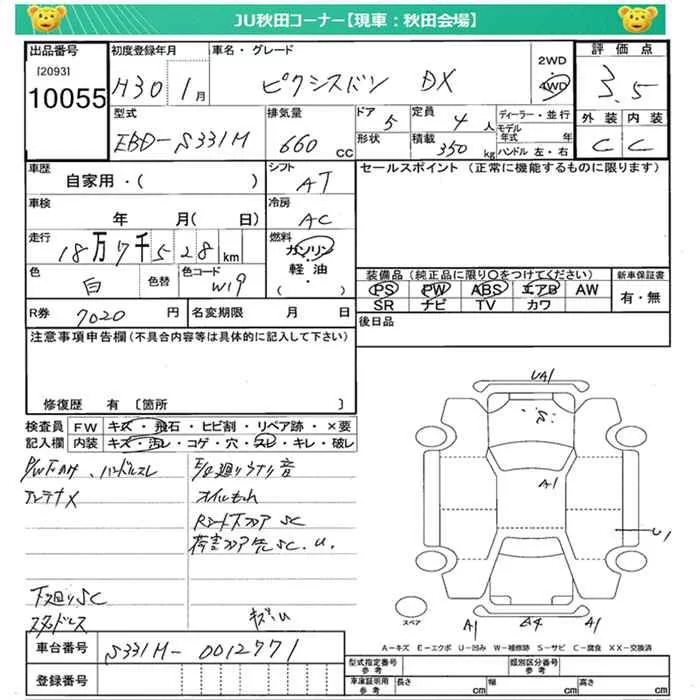 JU秋田コーナー【現車：秋田会場】
出品番号
[2093]
10055
初度登録年月
H30 1月
車名・グレード
ピクシスバン DX
2WD
4WD
評価点
3.5
外装 内装
C C
型式
EBD-S331M
排気量
660 cc
ドア
5
形状
定員
4人
積載
350 kg
ディーラー・並行
モデル年式 年
ハンドル 左・右
車歴
自家用・( )
シフト
AT
セールスポイント（正常に機能するものに限ります）
車検
年 月( 日)
冷房
AC
走行
18万7千528km
燃料
ガソリン
・
軽油
・
( )
色
白
色替
色コード
W19
装備品（純正品に限り〇をつけてください）
PS PW ABS エアB AW
SR ナビ TV カワ
新車保証書
有・無
R券 7020円
名変期限 月 日
後日品
注意事項申告欄（不具合内容等は具体的に記入して下さい）
修復歴 有 〔箇所 〕
検査員記入欄
FW キズ・飛石・ヒビ割・リペア跡・×要
内装 キズ・汚レ・コゲ・穴・スレ・キレ・破レ
ハンドルスレ
アンテナ×
E/g廻りうナリ音
オイルもれ
下廻りSC
スタッドレス
キズ・U
UA1
S
A1
U1
A1
A4
A1
スペア
A－キズ E－エクボ U－凹み W－補修跡 S－サビ C－腐食 XX－交換済
車台番号
S331M-0012771
登録番号
型式指定番号
参考
類別区分番号
参考
車庫証明用
参考
長さ cm 幅 cm 高さ cm